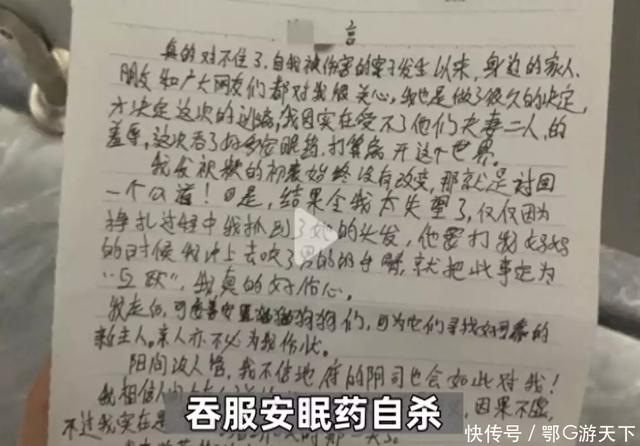 言
真的对不住了，自我被伤害的案子发生以来，身边的家人、
朋友和广大网友们都对我很关心，我也是做了很久的决定，
才决定这次的逃避，我因实在受不了他们夫妻二人，的
羞辱，这次吞了好多安眠药，打算离开这个世界。
我发视频的初衷始终没有改变，那就是讨回
一个公道！但是，结果令我太失望了，仅仅因为
挣扎过程中我抓到了她的头发，他要打我妈妈
的时候我冲上去咬了男的的手臂，就把此事定为
“互殴”，我真的好伤心。
我走后，可妥善安置猫猫狗狗们，可为它们寻找好可靠的
新主人。亲人亦不必为我伤忧。
阳间没人管，我不信地府的阴司也会如此对我！
我相信人
因果不虚，
不过我实在是
吞服安眠药自杀
快传号／鄂G游天下